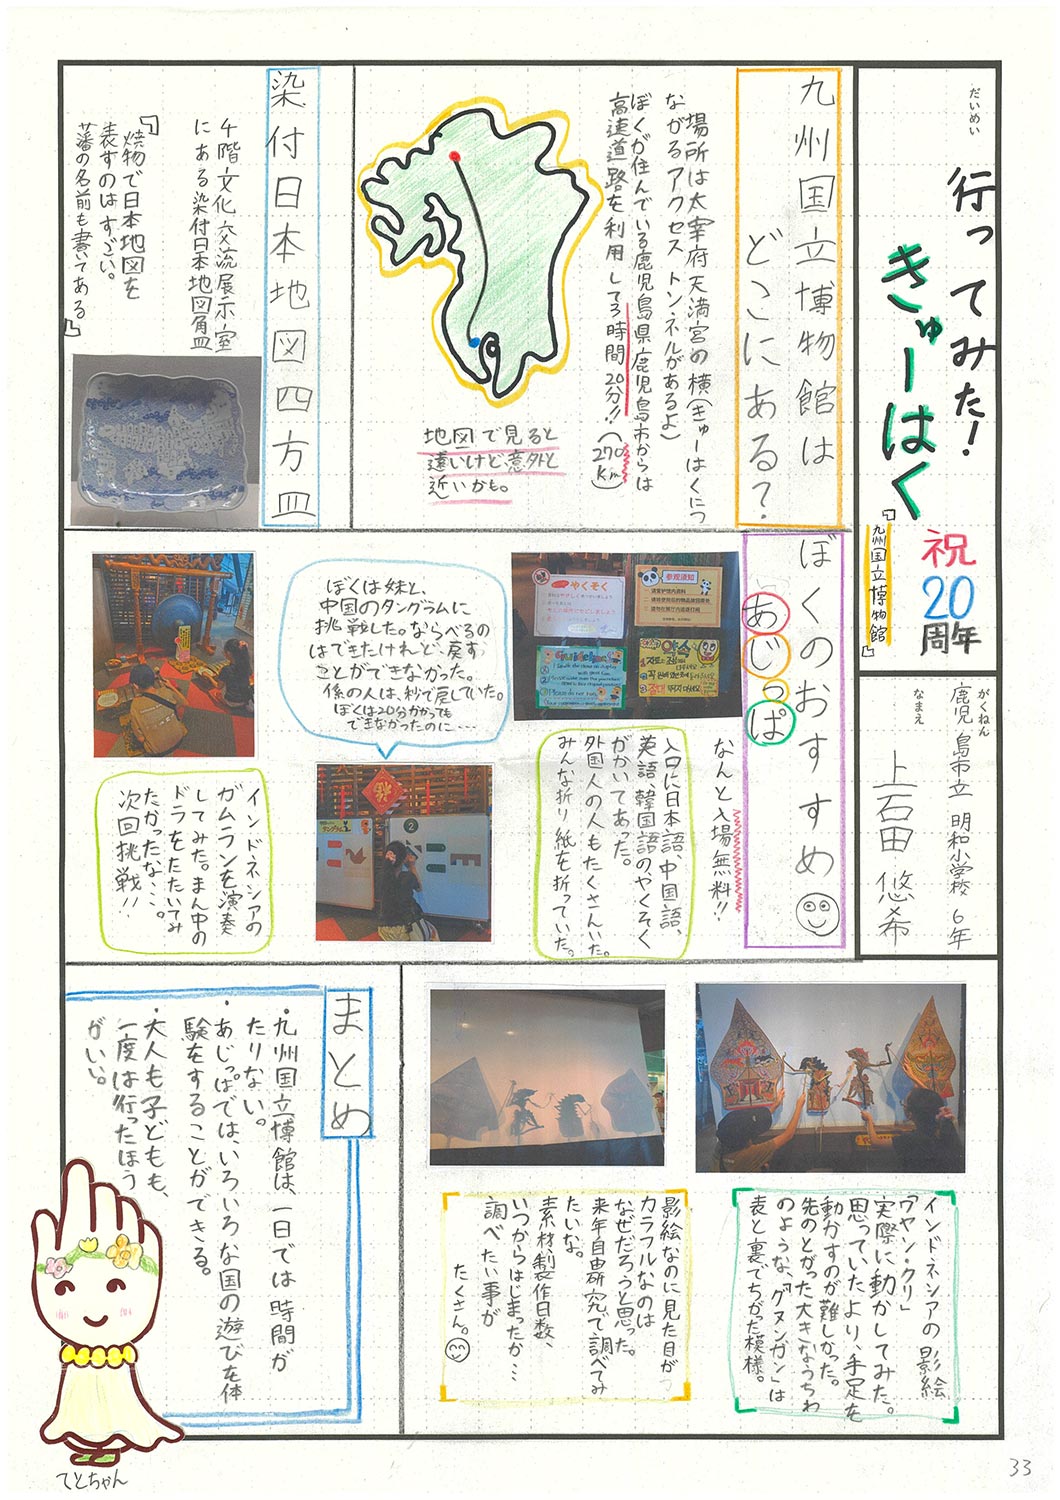 だいめい
行ってみた！
きゅーはく
『九州国立博物館』
祝
20
周年
がくねん
鹿児島市立 明和小学校 6年
なまえ
上石田 悠希
九州国立博物館は
どこにある？
場所は太宰府天満宮の横(きゅーはくにつ
ながるアクセストンネルがあるよ)
ぼくが住んでいる鹿児島県鹿児島市からは
高速道路を利用して3時間20分!!(270km)
地図で見ると
遠いけど、意外と
近いかも。
染付日本地図四方皿
4階文化交流展示室
にある染付日本地図角皿
『焼物で日本地図を
表すのはすごい。
藩の名前も書いてある』
ぼくのおすすめ
あじっぱ
なんと入場無料!!
やくそく
参观须知
Guidelines
약속
入口に日本語、中国語、
英語、韓国語のやくそく
がかいてあった。
外国人の人もたくさんいた。
みんな折り紙を折っていた。
ぼくは妹と、
中国のタングラムに
挑戦した。ならべるの
はできたけれど、戻す
ことができなかった。
係の人は、秒で戻していた。
ぼくは20分かかっても
できなかったのに…
福
2
インドネシアの
ガムランを演奏
してみた。まん中の
ドラをたたいてみ
たかったな…。
次回挑戦!!
インドネシアの影絵
「ワヤン・クリ」
実際に動かしてみた。
思っていたより、手足を
動かすのが難しかった。
先のとがった大きなうちわ
のような、「グヌンガン」は
表と裏でちがった模様。
影絵なのに見た目が
カラフルなのは
なぜだろうと思った。
来年自由研究で調べてみ
たいな。
素材、製作日数、
いつからはじまったか…
調べたい事が
たくさん。
まとめ
・九州国立博館は、一日では時間が
たりない。
・あじっぱでは、いろいろな国の遊びを体
験をすることができる。
・大人も子どもも、
一度は行ったほう
がいい。
てとちゃん
33